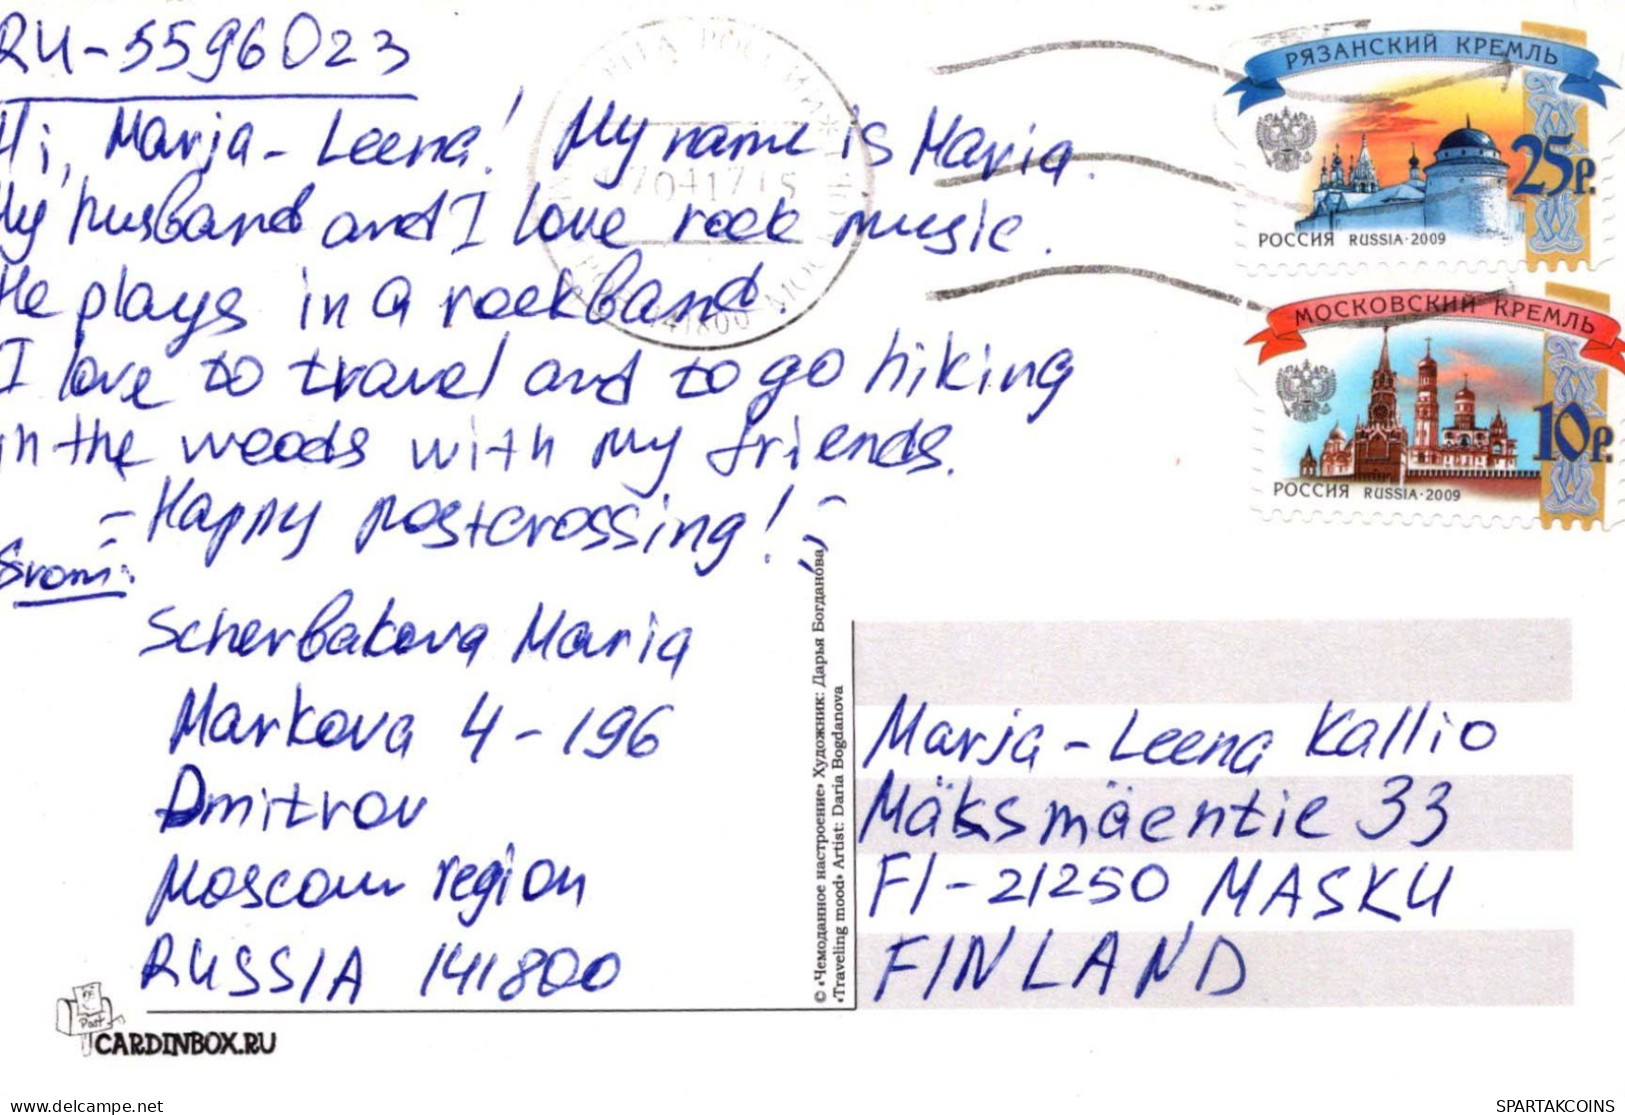 RU-5596023
Hi, Marja-Leena! My name is Maria.
My husband and I love rock music.
He plays in a rockband.
I love to travel and to go hiking
in the woods with my friends.
Happy postcrossing!
From:
Scherbakova Maria
Markova 4-196
Dmitrov
Moscow region
RUSSIA 141800
CARDINBOX.RU
Post
© «Чемоданное настроение» Художник: Дарья Богданова
«Traveling mood» Artist: Daria Bogdanova
РЯЗАНСКИЙ КРЕМЛЬ
25р.
РОССИЯ RUSSIA·2009
МОСКОВСКИЙ КРЕМЛЬ
10р.
РОССИЯ RUSSIA·2009
Marja-Leena Kallio
Mäksmäentie 33
FI-21250 MASKU
FINLAND
delcampe.net
SPARTAKCOINS